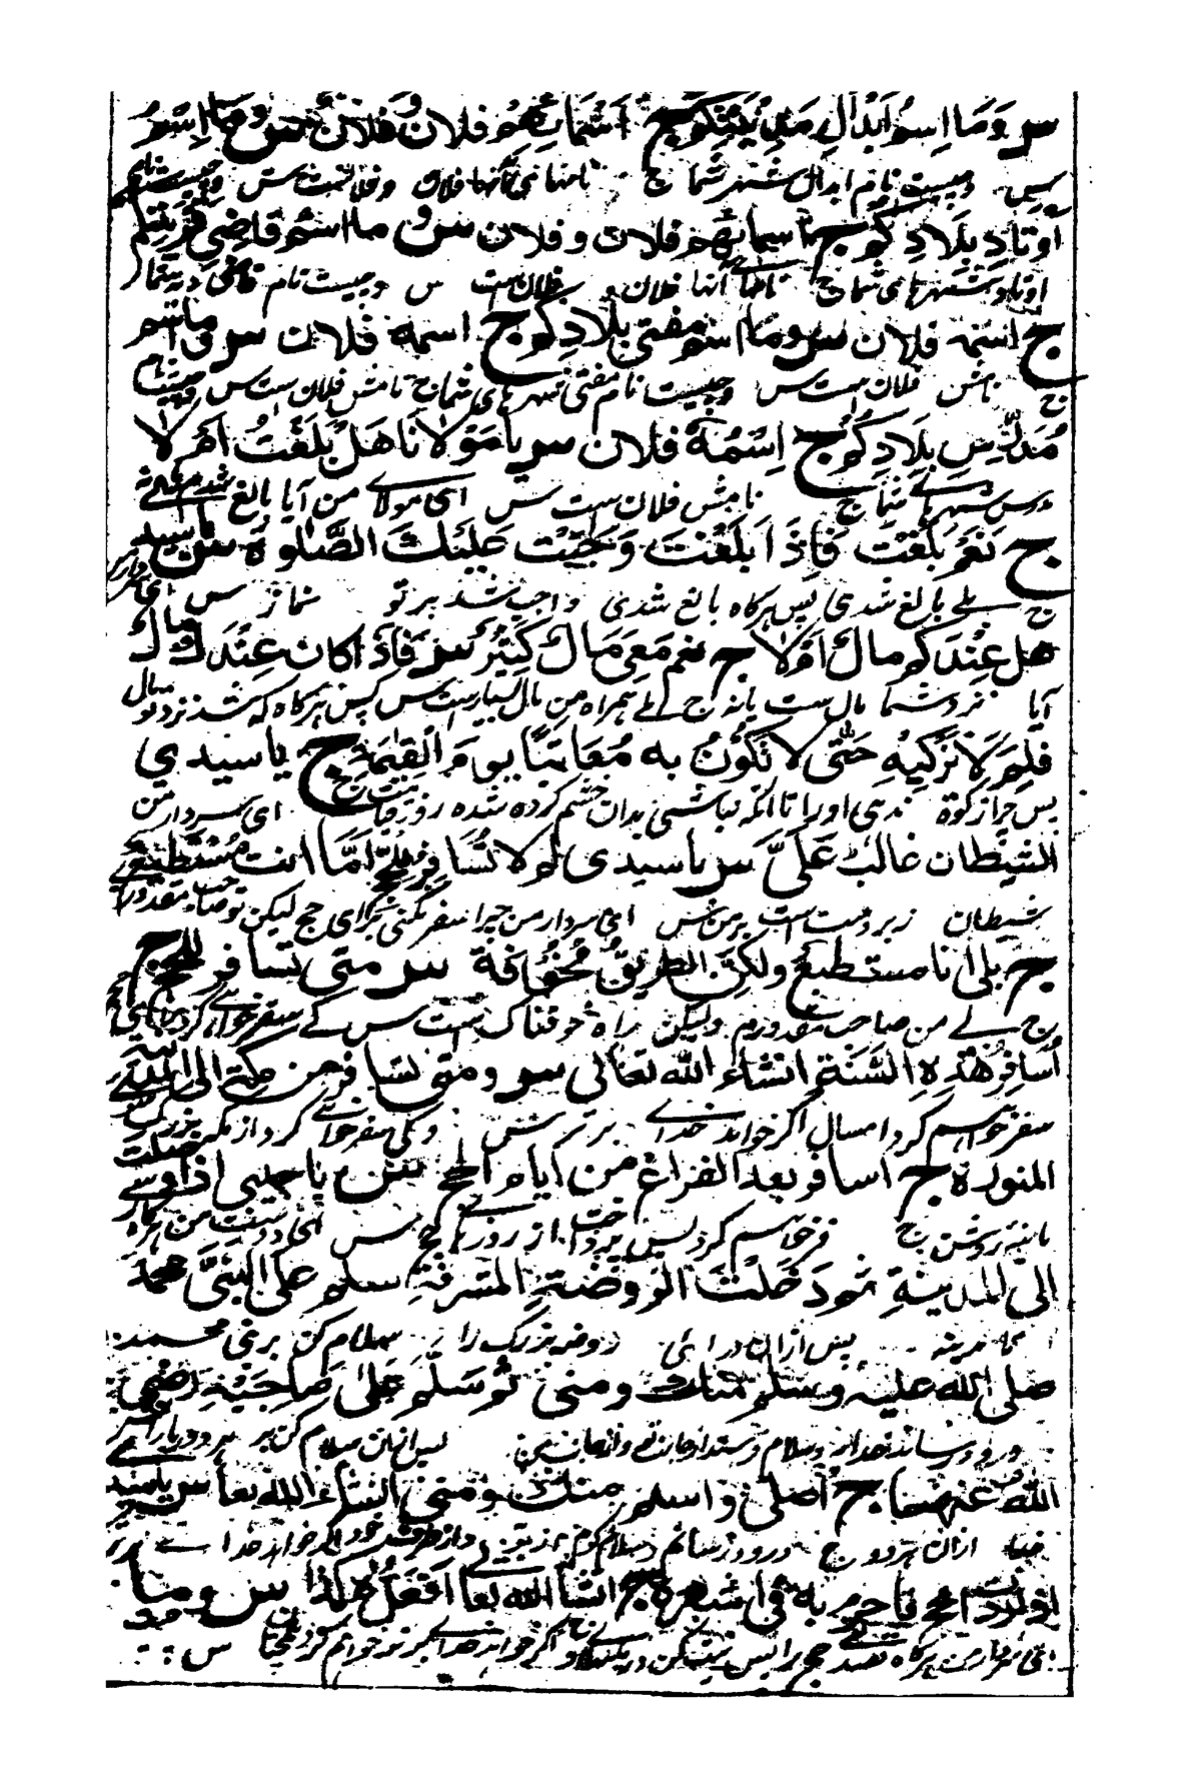 س وَمَا اِسمُ اَبْدَالِ مَدِيْنَتِكُمْ ج اَسْمَائُهُمْ فلان وفلان س وما اِسْمُ
س وچیست نام ابدال شهر شما ج نامهای آنها فلان وفلانست س وچیست نام
اَوْتَادِ بِلَادِكُمْ ج اسمائهم فلان وفلان س و ما اسْمُ قاضِي قريتكم
اوتاد شهرهای شما ج نامهای آنها فلان و فلان است س وچیست نام قاضی دیه شما
ج اِسْمُهٗ فلان س وما اسم مفتي بلادِكُم ج اسمه فلان س وما اسم
ج نامش فلان است س وچیست نام مفتی شهرهای شما ج نامش فلان است س وچیست نام
مُدَرِّسِ بِلَادِكُمْ ج اِسْمُهٗ فلان س يا مَوْلَانَا هَلْ بَلَغْتُ اَمْ لا
مدرس شهرهای شما ج نامش فلان ست س ای مولای من آیا بالغ شدم
ج نَعَمْ بَلَغْتَ فَاِذَا بَلَغْتَ وَجَبَتْ عَلَيْكَ الصَّلٰوةُ س يا سيدي
ج بلے بالغ شدی پس هرگاه بالغ شدی واجب شد بر تو نماز س ای
هل عِنْدَكُم مال اَمْ لا ج نعم مَعِيَ مَالٌ كَثِيْرٌ س فَاِذَا كان عِنْدَكَ مال
آیا نزد شما مال ست یا نه ج بلے همراه من مال بسیارست س پس هرگاه که شد نزد تو مال
فَلِمَ لَا تُزَكِّيْهِ حَتّٰى لا تَكُوْنَ به مُعَاتَبًا يومَ الْقِيٰمَةِ ج يا سيدي
پس چرا زکوة ندهی او را تا آنکه نباشی بدان خشم کرده شده روز قیامت ج ای سردار من
الشيطان غالبٌ عَلَيَّ س يا سيدي لِمَ لا تُسَافِرُ لِلْحَجِّ اَمَّا انت مُسْتَطِيْعٌ
شیطان زبردست است بر من س ای سردار من چرا سفر نکنی برای حج لیکن تو صاحب مقدوری
ج بلى انا مستطيعٌ ولكن الطريقُ مُخَوَّفَةٌ س متى تسافر للحج ج
ج بلے من صاحب مقدورم ولیکن راه خوفناک ست س کے سفر خواهی کرد برای حج
اُسَافِرُ هٰذِهِ السَّنَةَ انشاء الله تعالى س ومتى تسافر من مكة الى المدينة
سفر خواهم کرد امسال اگر خواهد خدای برتر س وکی سفر خواهی کرد از مکه بزرگ
المنورة ج اسافر بعد الفراغ من ايام الحج س يا حبيبي اذا وصلت
مدینه روشن ج سفر خواهم کرد پس پرداخت از روزهای حج س ای دوست من هرگاه
الى المدينةِ ثم دَخَلْتَ الرَّوْضَةَ المشرفةَ سلم على النبيِّ محمد
مدینه پس ازان درآئی روضه بزرگ را سلام کن بر نبی محمد
صلى الله عليه وسلم منك ومني ثُمَّ سَلِّمْ عَلٰى صَاحِبَيْهِ رضي
درود رساند خدا بر او وسلام فرستد از جانب تو واز جانب من پس ازان سلام کن بر هر دو یار
الله عنهما ج اُصَلِّي واسلم منك ومني انشاء الله تعالى س يا سيدي
خدا ازان هر دو ج درود رسانم وسلام کنم از تو واز طرف خود اگر خواهد خدا
اذا اردت الحج فاحرم به في اشهره ج انشاء الله تعالى افعل هكذا س وما
هرگاه قصد حج را پس نیت کن اگر خواهد خدای برتر خواهم کرد س